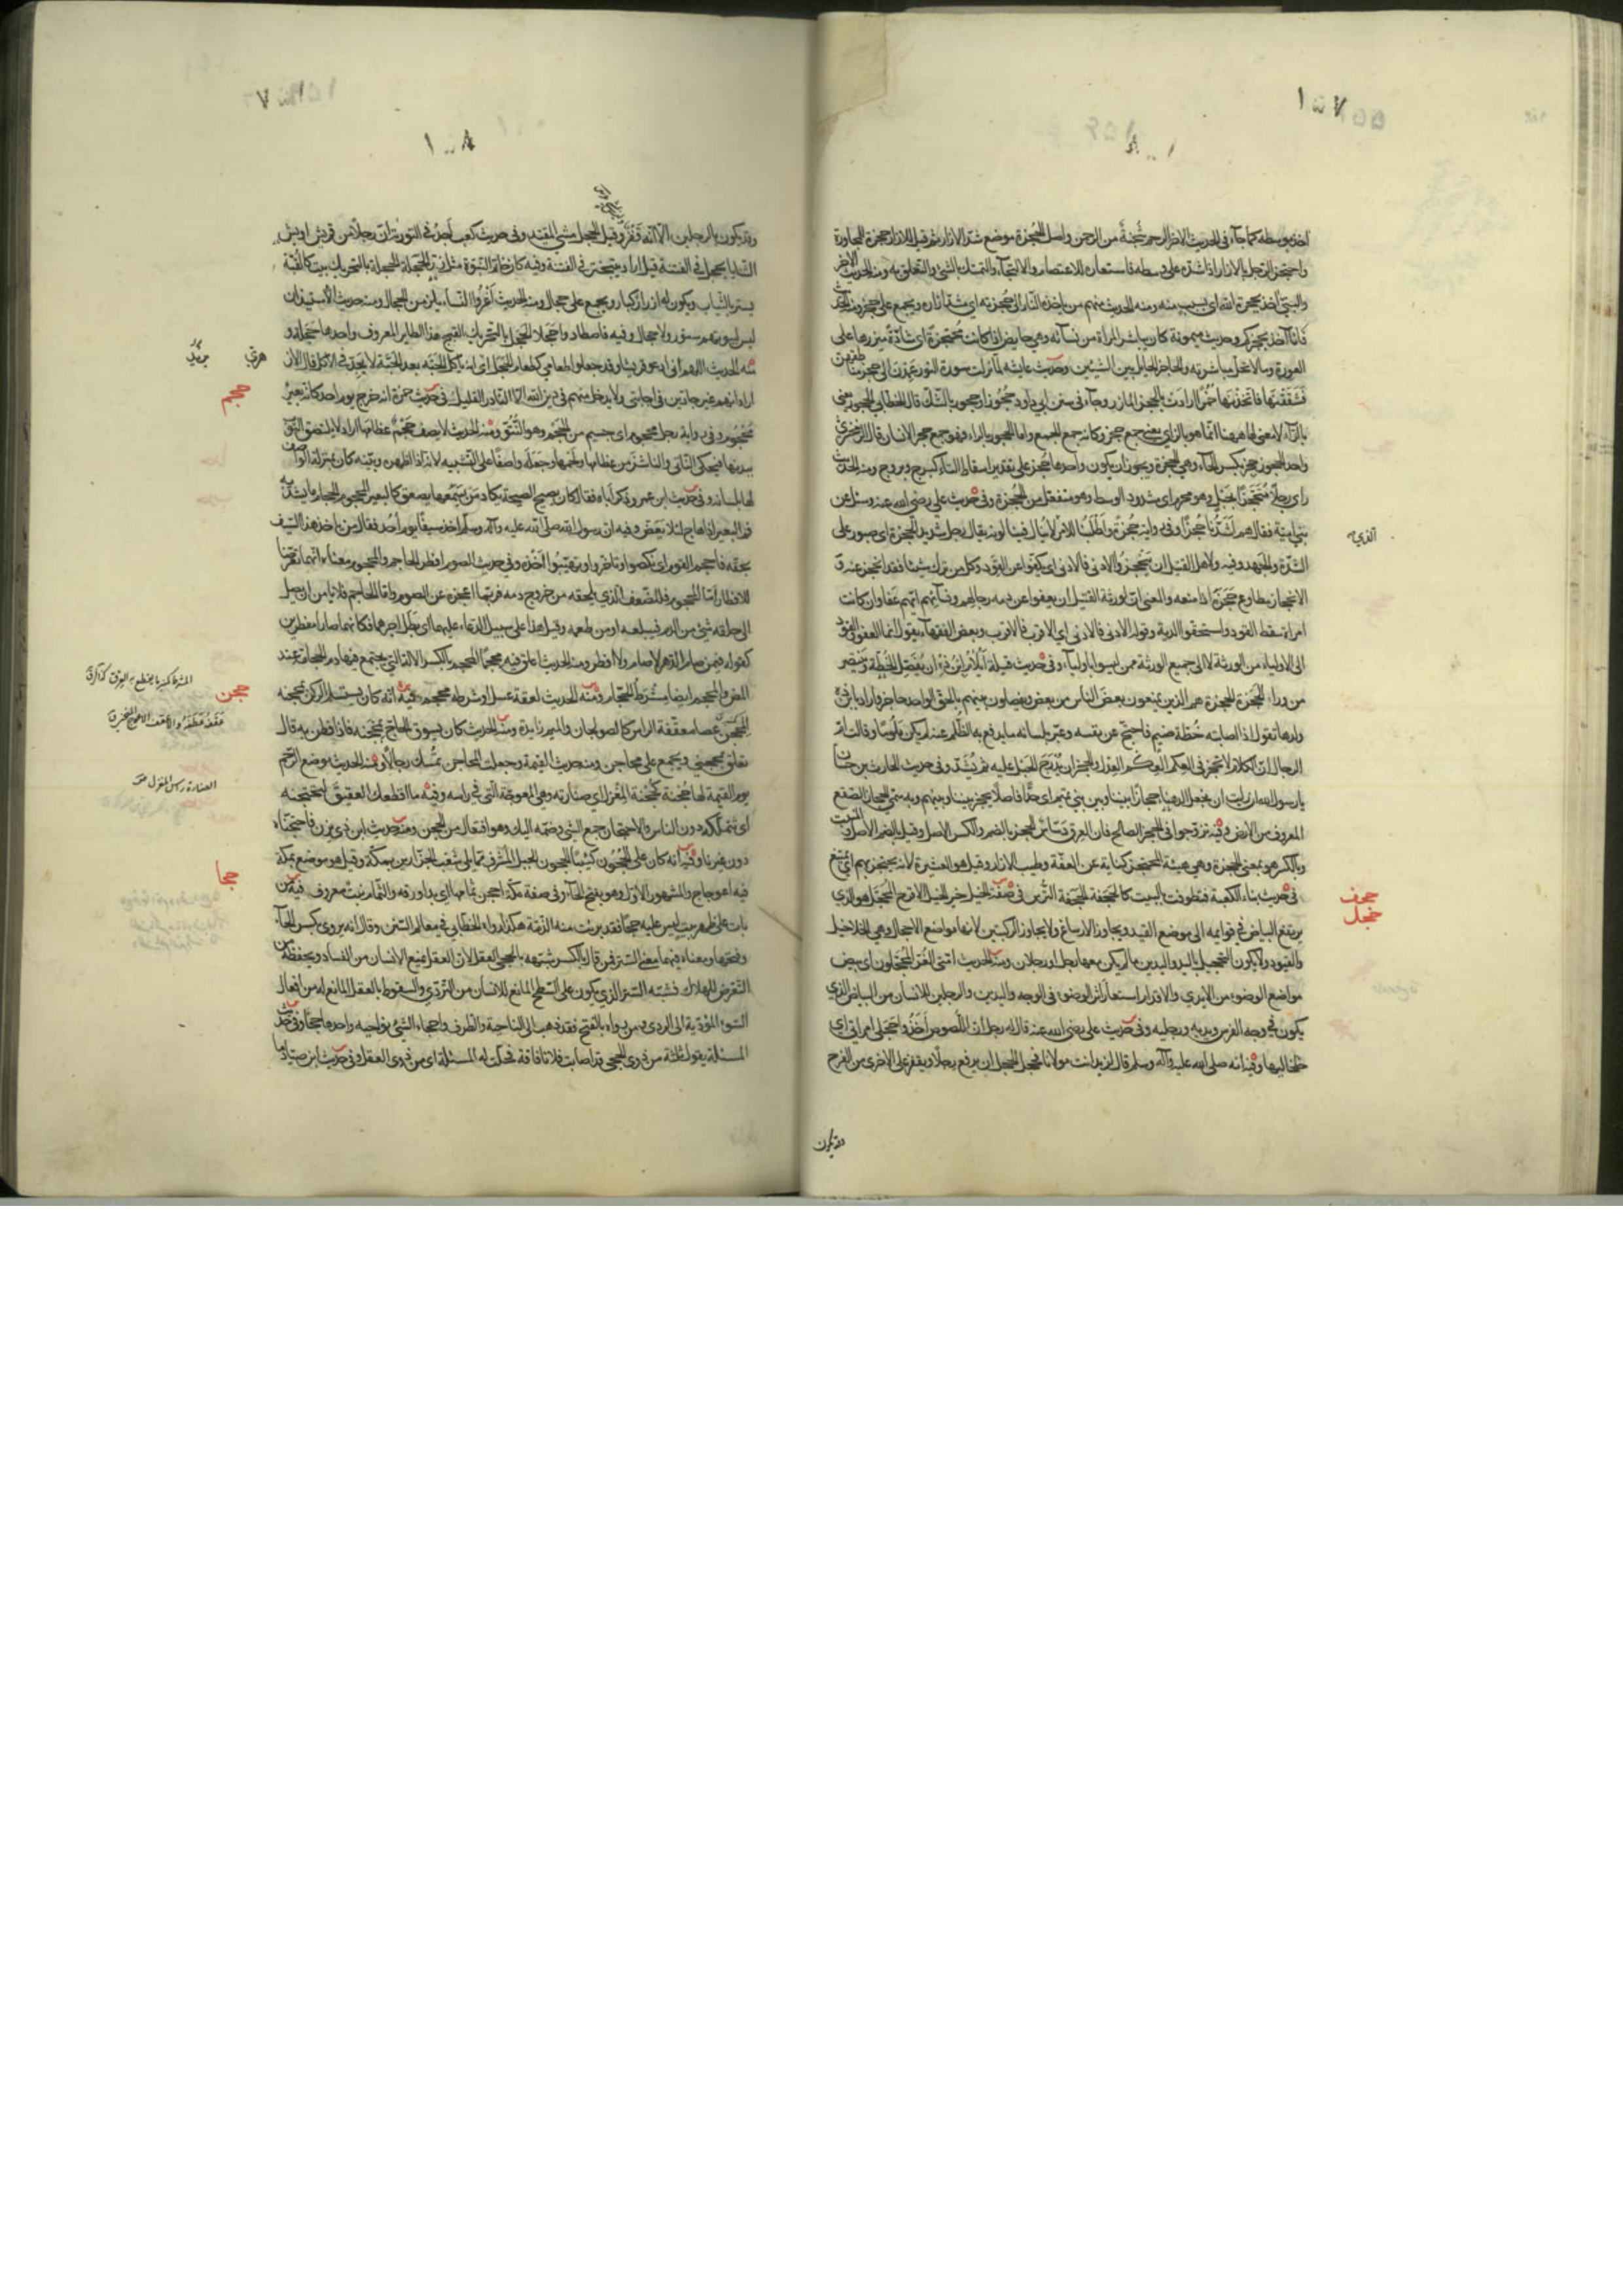 ١٥٧
٨٠٠١
اخذ بوسطه كما جاء فى الحديث الاخر الرحم شُجنة من الرحمن واصل الحُجزة موضع شدّ الازار ثم قيل للازار حجزة للمجاورة
واحتجز الرجل بالازار اذا شدّه على وسطه فاستعاره للاعتصام والالتجآء والتمسّك بالشئ والتعلق به ومنه الحديث الاخر
والنبيّ آخذ بحجزة الله اى بسبب منه ومنه الحديث منهم من ياخذه النار الى حُجزته اى مشدّ ازاره ويجمع على حجز ومنه الحديث
فانا آخذ بحجزكم وحديث ميمونة كان يباشر المراة من نسآئه وهى حايض اذا كانت مُحتجزة اى شادّة مئزرها على
العورة وما لا تحلّ مباشرته والحاجز الحايل بين الشيئين وحديث عايشه لمّا نزلت سورة النور عمدن الى حجز مناطقهن
فشققنها فاتخذنها خُمُرًا ارادت بالحجز المآزر وجآء فى سنن ابى داود حجوز او حجور بالشّك قال الخطابى الحجور يعنى
بالرآء لا معنى لها ههنا انّما هو بالزاى يعنى جمع حجز وكانه جمع الجمع واما الحجور بالراء فهو جمع حجر الانسان قال الزمخشرى
واحد الحجوز حجز بكسر الحآء وهى الحجزة ويجوز ان يكون واحدها حُجزة على تقدير اسقاط التآء كبرج وبروج ومنه الحديث
راى رجلًا مُحتجزًا بحبل وهو محرم اى مشدود الوسط وهو مفتعل من الحُجزة وفى حديث على رضى الله عنه وسئل عن
بنى امية فقال هم اشدّنا حُجَزًا وفى رواية حُجزة واطلبنا للامر لا يُنال فينالونه يقال رجل شديد الحجزة اى صبور على
الشدّة والجهد وفيه ولاهل القتيل ان ينحجزوا الادنى فالادنى اى يكفّوا عن القود وكل من ترك شيئا فقد انحجز عنه و
الانحجاز مطاوع حَجَزَه اذا منعه والمعنى ان لورثة القتيل ان يعفوا عن دمه رجالهم ونسآئهم ايّهم عفا وان كانت
امراة سقط القود واستحقّوا الدية وقوله الادنى فالادنى اى الاقرب فالاقرب وبعض الفقهآء يقول انما العفو والقود
الى الاولياء من الورثة لا الى جميع الورثة ممن ليسوا باوليآء وفى حديث قيلة ايُلام ابنُ ذه ان يفصل الخُطّة وينتصر
من وراء الحَجَزة الحجزة هم الذين يمنعون بعض الناس من بعض ويفصلون بينهم بالحق الواحد حاجز واراد بابن ذه
ولدها تقول اذا اصابته خُطّة ضيم فاحتجّ عن نفسه وعبّر بلسانه ما يدفع به الظلم عنه لم يكن ملومًا وقالت ام
الرحال ان الكلام لا يُحجز فى العِكم العِكم العدل والحجز ان يُدرج الحبل عليه ثم يُشدّ وفى حديث الحارث بن حسان
يا رسول الله ان رايت ان تجعل الدهناء حجازًا بيننا وبين بنى تميم اى حدًا فاصلًا يحجز بيننا وبينهم وبه سمّى الحجاز الصقع
المعروف من الارض وفيه تزوجوا فى الحُجز الصالح فان العرق دسّاس الحجز بالضم والكسر الاصل وقيل بالضم الاصل والمنبت
وبالكسر هو بمعنى الحجزة وهى هيئة المحتجز كناية عن العفّة وطيب الازار وقيل هو العشيرة لانه يحتجز بهم اى يمتنع
فى حديث بناء الكعبة فتطوقت بالبيت كالحجفة الحجفة التُرس فى صفة الخيل خير الخيل الاقرح المحجّل هو الذى
يرتفع البياض فى قوايمه الى موضع القيد ويجاوز الارساغ ولا يجاوز الركبتين لانها مواضع الاحجال وهى الخلاخيل
والقيود ولا يكون التحجيل باليد واليدين ما لم يكن معها رجل او رجلان ومنه الحديث امتى الغُرّ المحجّلون اى بيض
مواضع الوضوء من الايدى والاقدام استعار اثر الوضوء فى الوجه واليدين والرجلين للانسان من البياض الذى
يكون فى وجه الفرس ويديه ورجليه وفى حديث على رضى الله عنه قال له رجل ان اللصوص اخذوا حجلى امراتى اى
خلخاليها وفيه انه صلى الله عليه وآله وسلم قال لزيد انت مولانا فحجل الحجل ان يرفع رجلا ويقفز على الاخرى من الفرح
حجف
حجل
وقد يكون
٨٠٠١
وقد يكون بالرجلين الا انه قفز وقيل الحجل مشى المقيد وفى حديث كعب اجد فى التورية ان رجلًا من قريش اوبش
الثنايا يحجل فى الفتنة قيل اراد يتبختر فى الفتنة وفيه كان خاتم النبوة مثل زرّ الحجلة الحجلة بالتحريك بيت كالقبّة
يستر بالثياب ويكون له ازرار كبار ويجمع على حجال ومنه الحديث اعروا النسآء يلزمن الحجال ومنه حديث الاستيذان
ليس لبيوتهم ستور ولا حجال وفيه فاصطادوا حجلا الحجل بالتحريك القبج هذا الطاير المعروف واحدها حجلة و
منه الحديث اللهم انى ادعو قريشا وقد جعلوا طعامى كطعام الحجل اى انه ياكل الحبّة بعد الحبّة لا يجدّ فى الاكل قال الازهرى
اراد انهم غير جادّين فى اجابتى ولا يدخل منهم فى دين الله الا النادر القليل فى حديث حمزة انه خرج يوم احد كانّه بعير
محجوم وفى رواية رجل محجوم اى جسيم من الحجم وهو النتوّ ومنه الحديث لا يصف حجم عظامها اراد لا يلتصق الثوب
ببدنها فيحكى الناتى والناشز من عظامها ولحمها وجعله واصفًا على التشبيه لانه اذا اظهره وبيّنه كان بمنزلة الواصف
لها بلسانه وفى حديث ابن عمر وذكر اباه فقال كان يصيح الصيحة يكاد من يسمعها يصعق كالبعير المحجوم الحجام ما يشدّ به
فم البعير اذا هاج لئلا يعضّ وفيه ان رسول الله صلى الله عليه وآله وسلم اخذ سيفًا يوم اُحُد فقال من ياخذ هذا السّيف
بحقه فاحجم القوم اى نكصوا وتاخّروا وتهيّبوا اخذه وفى حديث الصوم افطر الحاجم والمحجوم معناه انهما تعرّضا
للافطار امّا المحجوم فللضعف الذى يلحقه من خروج دمه فربما اعجزه عن الصوم وامّا الحاجم فلا يامن ان يصل
الى حلقه شئ من الدم فيبلعه او من طعمه وقيل هذا على سبيل الدعاء عليهما اى بطل اجرهما فكانهما صارا مفطرين
كقوله فيمن صام الدهر لا صام ولا افطر ومنه الحديث اعلق فيه محجمًا المحجم بالكسر الالة التى يجتمع فيها دم الحجامة عند
المصّ والمحجم ايضا مشرط الحجّام ومنه الحديث لعقة عسل او شرطة محجم فيه انه كان يستلم الركن بمحجنه
المحجن عصا معقّفة الراس كالصولجان والميم زايدة ومنه الحديث كان يسرق الحاجّ بمحجنه فاذا فطن به قال
تعلّق بمحجنى ويجمع على محاجن ومنه حديث القيمة وجعلت المحاجن تمسك رجالًا ومنه الحديث توضع الرحم
يوم القيمة لها حُجنة كحجنة المغزل اى صنّارته وهى المعوجّة التى فى راسه وفيه ما اقطعك العقيق لتحتجنه
اى تتملّكه دون الناس والاحتجان جمع الشئ وضمّه اليك وهو افتعال من الحجن ومنه حديث ابن ذى يزن واحتجنّاه
دون غيرنا وفيه انه كان على الحَجون كئيبًا الحجون الجبل المشرف ممّا يلى شعب الجزّارين بمكّة وقيل هو موضع بمكة
فيه اعوجاج والمشهور الاول وهو بفتح الحآء وفى صفة مكّة احجن ثمامها اى بدا ورقه والثمام نبت معروف فيه من
بات على ظهر بيت ليس عليه حجًا فقد برئت منه الذّمّة هكذا رواه الخطّابى فى معالم السنن وقال انه يروى بكسر الحآء
وفتحها ومعناه فيهما معنى الستر فمن قال بالكسر شبّهه بالحجى العقل لان العقل يمنع الانسان من الفساد ويحفظه من
التعرّض للهلاك فشبّه الستر الذى يكون على السطح المانع للانسان من التردّى والسقوط بالعقل المانع له من افعال
السوء المؤدّية الى الردى ومن رواه بالفتح فقد ذهب الى الناحية والطرف واحجاء الشئ نواحيه واحدها حجًا وفى حديث
المسئلة يقول ثلثة من ذوى الحجى قد اصابت فلانا فاقة فحلّت له المسئلة اى من ذوى العقل وفى حديث ابن صيّاد ما
حجم
حجن
حجا